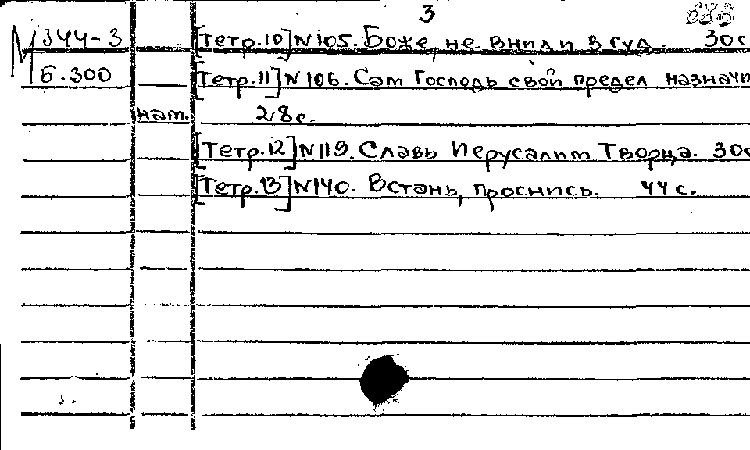 3
М 344-3 [Тетр.10] №105. Боже, не вниди в суд. 30с
Б.300 [Тетр.11] №106. Сам Господь свой предел назначи
нот. 28с.
[Тетр.12] №119. Славь Иерусалим Творца. 30с
[Тетр.13] №140. Встань, проснись. 44с.